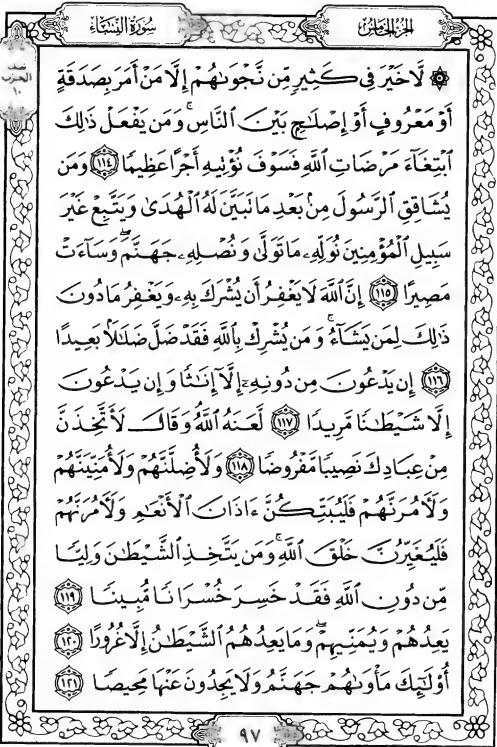 سُورَةُ النِّسَاءِ
الجُزْءُ الخَامِسُ
الحزب
١٠
۞ لَّا خَيْرَ فِي كَثِيرٍ مِّن نَّجْوَىٰهُمْ إِلَّا مَنْ أَمَرَ بِصَدَقَةٍ
أَوْ مَعْرُوفٍ أَوْ إِصْلَٰحٍۭ بَيْنَ ٱلنَّاسِۚ وَمَن يَفْعَلْ ذَٰلِكَ
ٱبْتِغَآءَ مَرْضَاتِ ٱللَّهِ فَسَوْفَ نُؤْتِيهِ أَجْرًا عَظِيمًا ١١٤ وَمَن
يُشَاقِقِ ٱلرَّسُولَ مِنۢ بَعْدِ مَا تَبَيَّنَ لَهُ ٱلْهُدَىٰ وَيَتَّبِعْ غَيْرَ
سَبِيلِ ٱلْمُؤْمِنِينَ نُوَلِّهِۦ مَا تَوَلَّىٰ وَنُصْلِهِۦ جَهَنَّمَۖ وَسَآءَتْ
مَصِيرًا ١١٥ إِنَّ ٱللَّهَ لَا يَغْفِرُ أَن يُشْرَكَ بِهِۦ وَيَغْفِرُ مَا دُونَ
ذَٰلِكَ لِمَن يَشَآءُۚ وَمَن يُشْرِكْ بِٱللَّهِ فَقَدْ ضَلَّ ضَلَٰلًۢا بَعِيدًا
١١٦ إِن يَدْعُونَ مِن دُونِهِۦٓ إِلَّآ إِنَٰثًا وَإِن يَدْعُونَ
إِلَّا شَيْطَٰنًا مَّرِيدًا ١١٧ لَّعَنَهُ ٱللَّهُۘ وَقَالَ لَأَتَّخِذَنَّ
مِنْ عِبَادِكَ نَصِيبًا مَّفْرُوضًا ١١٨ وَلَأُضِلَّنَّهُمْ وَلَأُمَنِّيَنَّهُمْ
وَلَءَامُرَنَّهُمْ فَلَيُبَتِّكُنَّ ءَاذَانَ ٱلْأَنْعَٰمِ وَلَءَامُرَنَّهُمْ
فَلَيُغَيِّرُنَّ خَلْقَ ٱللَّهِۚ وَمَن يَتَّخِذِ ٱلشَّيْطَٰنَ وَلِيًّا
مِّن دُونِ ٱللَّهِ فَقَدْ خَسِرَ خُسْرَانًا مُّبِينًا ١١٩
يَعِدُهُمْ وَيُمَنِّيهِمْۖ وَمَا يَعِدُهُمُ ٱلشَّيْطَٰنُ إِلَّا غُرُورًا ١٢٠
أُو۟لَٰٓئِكَ مَأْوَىٰهُمْ جَهَنَّمُ وَلَا يَجِدُونَ عَنْهَا مَحِيصًا ١٢١
٩٧